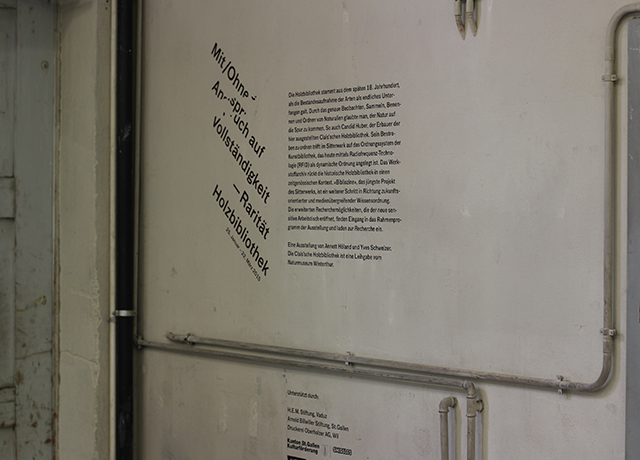 Mit/Ohne –
Anspruch auf
Vollständigkeit
— Rarität
Holzbibliothek
Die Holzbibliothek stammt aus dem späten 18. Jahrhundert,
als die Bestandsaufnahme der Arten als endliches Unter-
fangen galt. Durch das genaue Beobachten, Sammeln, Benen-
nen und Ordnen von Naturalien glaubte man, der Natur auf
die Spur zu kommen. So auch Candid Huber, der Erbauer der
hier ausgestellten Clais'schen Holzbibliothek. Sein Bestre-
ben zu ordnen trifft im Sitterwerk auf das Ordnungssystem der
Kunstbibliothek, das heute mittels Radiofrequenz-Techno-
logie (RFID) als dynamische Ordnung angelegt ist. Das Werk-
stoffarchiv rückt die historische Holzbibliothek in einen
zeitgenössischen Kontext. «Bibliozine», das jüngste Projekt
des Sitterwerks, ist ein weiterer Schritt in Richtung zukunfts-
orientierter und medienübergreifender Wissensordnung.
Die erweiterten Recherchemöglichkeiten, die der neue sen-
sitive Arbeitstisch eröffnet, finden Eingang in das Rahmenpro-
gramm der Ausstellung und laden zur Recherche ein.
Eine Ausstellung von Annett Höland und Yves Schweizer.
Die Clais'sche Holzbibliothek ist eine Leihgabe vom
Naturmuseum Winterthur.
Unterstützt durch:
H.E.M. Stiftung, Vaduz
Arnold Billwiller Stiftung, St.Gallen
Druckerei Oberholzer AG, Wil
Kanton St.Gallen
Kulturförderung